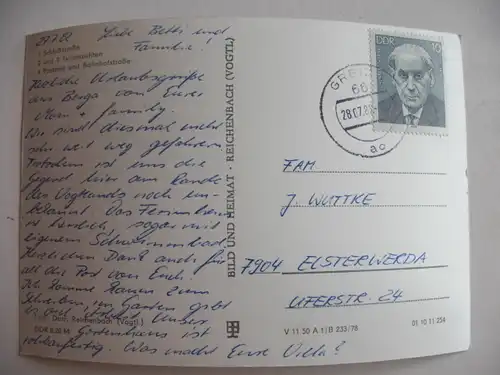 27.7.82 Liebe Betti und
Familie!
1 Schloßstraße
2 und 3 Teilansichten
4 Postamt und Bahnhofstraße
Herzliche Urlaubsgrüße
aus Berga von Eurer
+ family
Wir sind diesmal nicht
sehr weit weg gefahren.
Trotzdem ist uns die
Gegend hier am Rande
des Vogtlands noch un-
bekannt. Das Ferienheim
ist herrlich, sogar mit
eigenem Schwimmbad.
Herzlichen Dank auch für
all die Post von Euch.
Ich komme kaum zum
Schreiben, im Garten gibt
es viel Arbeit. Unser
Gartenhaus ist
Darr, Reichenbach (Vogtl.)
Was macht Eure Villa?
BILD UND HEIMAT · REICHENBACH (VOGTL)
V 11 50 A 1|B 233/78
01 10 11 254
DDR
10
GREI
66
28.07.82
ac
FAM
J. WUTTKE
7904 ELSTERWERDA
UFERSTR. 24